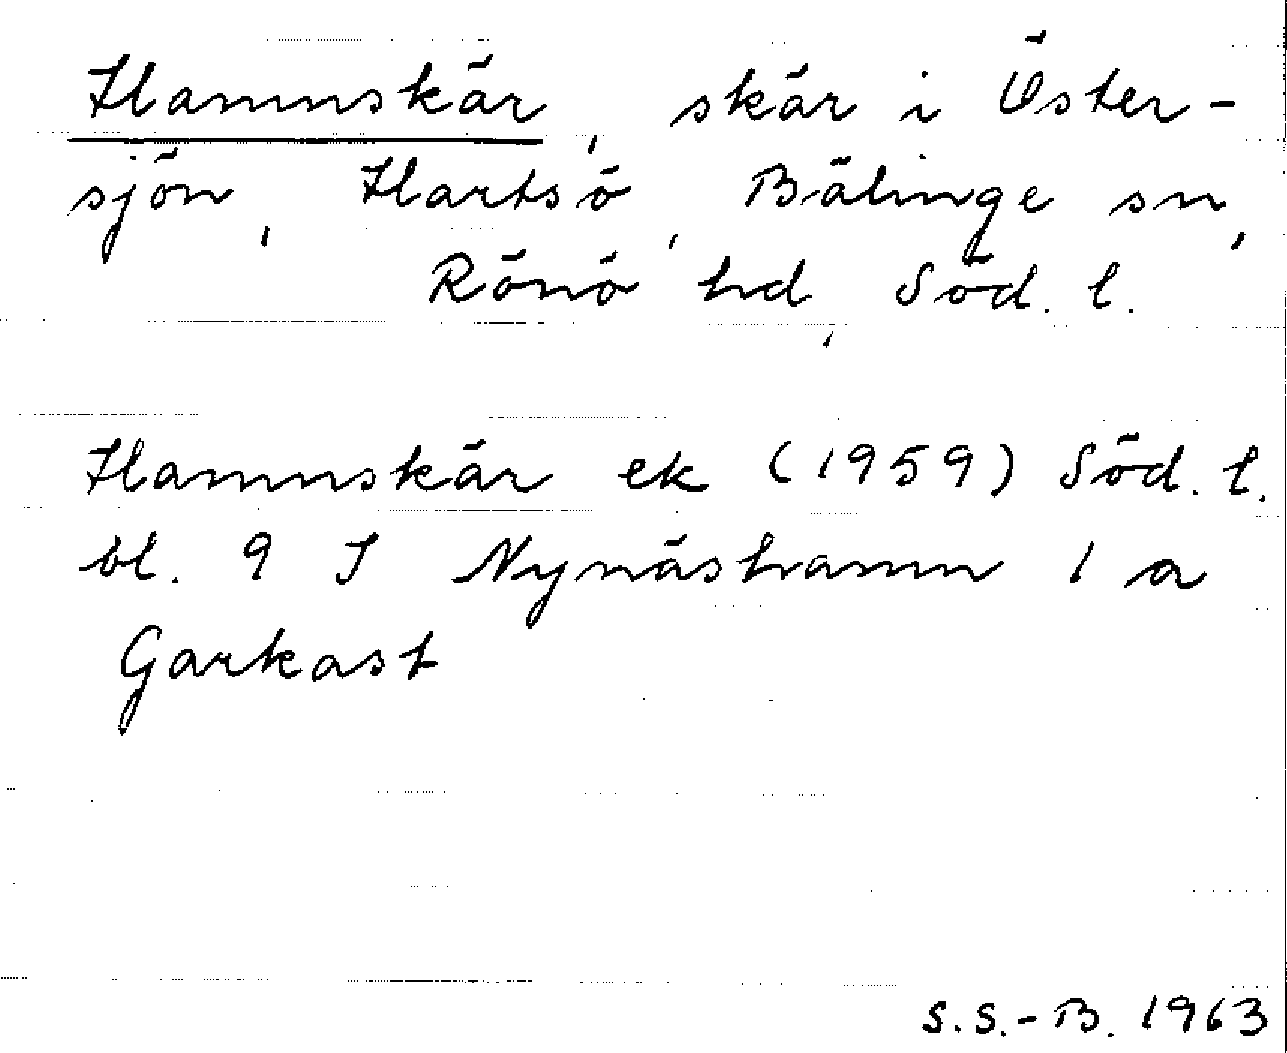 Hamnskär, skär i Öster-
sjön, Hartsö, Bälinge sn,
Rönö hd, Söd. l.
Hamnskär ek (1959) Söd. l.
bl. 9 I Nynäshamn 1 a
Garkast
S.S.-B. 1963